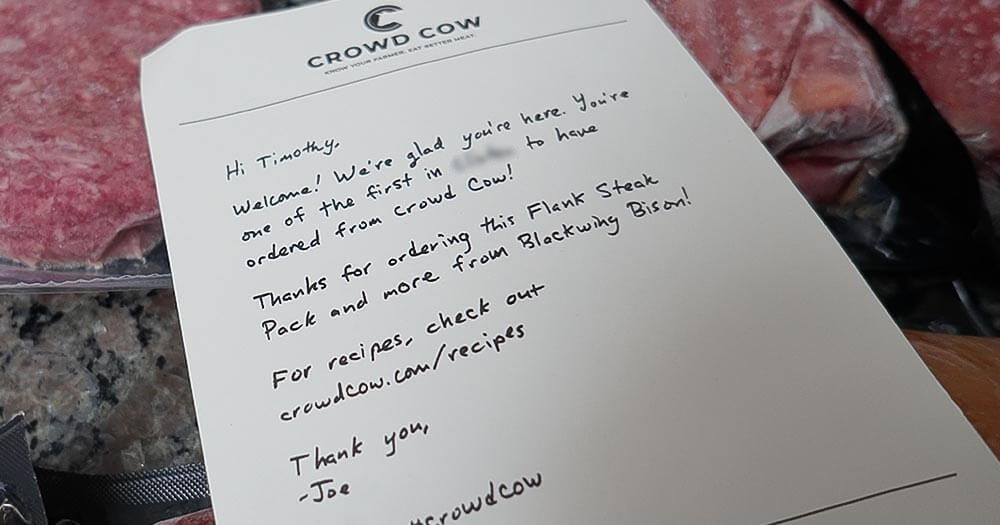 CROWD COW
KNOW YOUR FARMER. EAT BETTER MEAT.
Hi Timothy,
Welcome! We're glad you're here. You're
one of the first in to have
ordered from Crowd Cow!
Thanks for ordering this Flank Steak
Pack and more from Blackwing Bison!
For recipes, check out
crowdcow.com/recipes
Thank you,
-Joe
#crowdcow